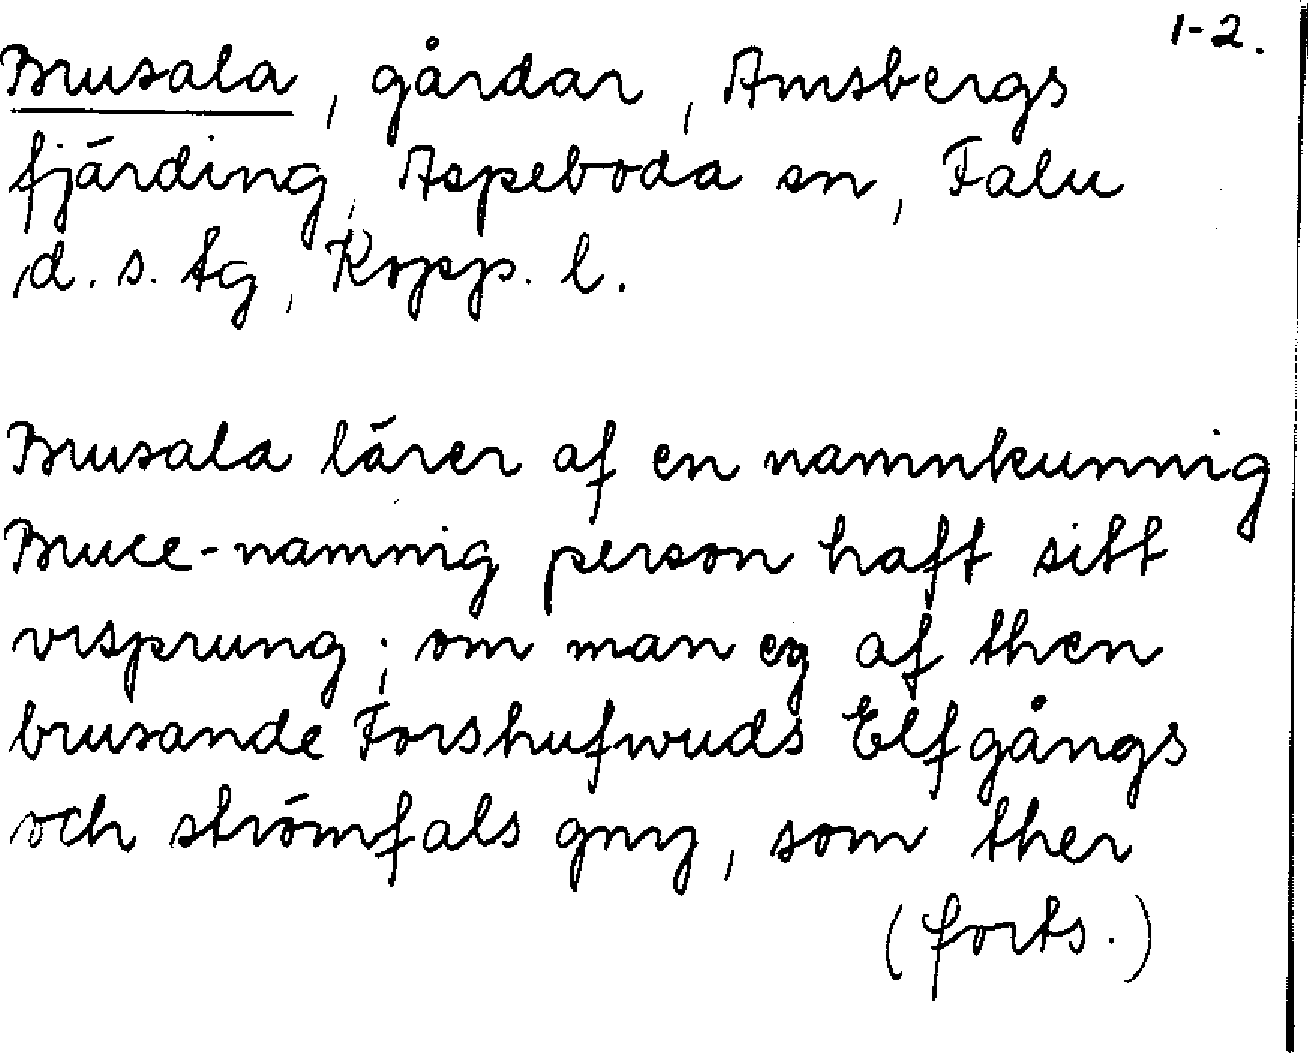 1-2.
Brusala, gårdar, Amsbergs
fjärding, Aspeboda sn, Falu
d. s. tg, Kopp. l.
Brusala lärer af en namnkunnig
Bruce-namnig person haft sitt
vrsprung; om man ey af then
brusande Forshufwuds Elfgångs
och strömfals gny, som ther
(forts.)